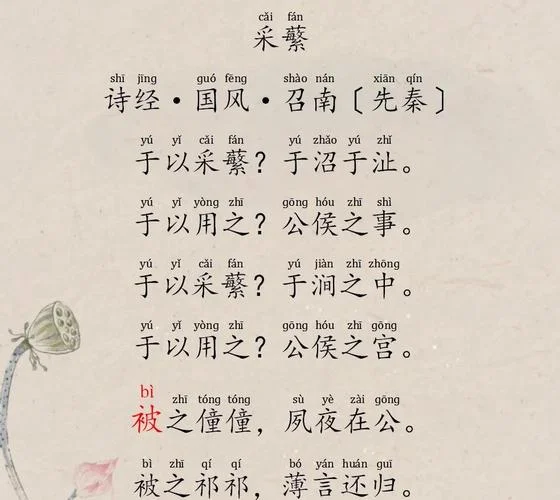 cǎi fán
采蘩
shī jīng guó fēng shào nán xiān qín
诗经·国风·召南〔先秦〕
yú yǐ cǎi fán yú zhǎo yú zhǐ
于以采蘩？于沼于沚。
yú yǐ yòng zhī gōng hóu zhī shì
于以用之？公侯之事。
yú yǐ cǎi fán yú jiàn zhī zhōng
于以采蘩？于涧之中。
yú yǐ yòng zhī gōng hóu zhī gōng
于以用之？公侯之宫。
bì zhī tóng tóng sù yè zài gōng
被之僮僮，夙夜在公。
bì zhī qí qí bó yán huán guī
被之祁祁，薄言还归。